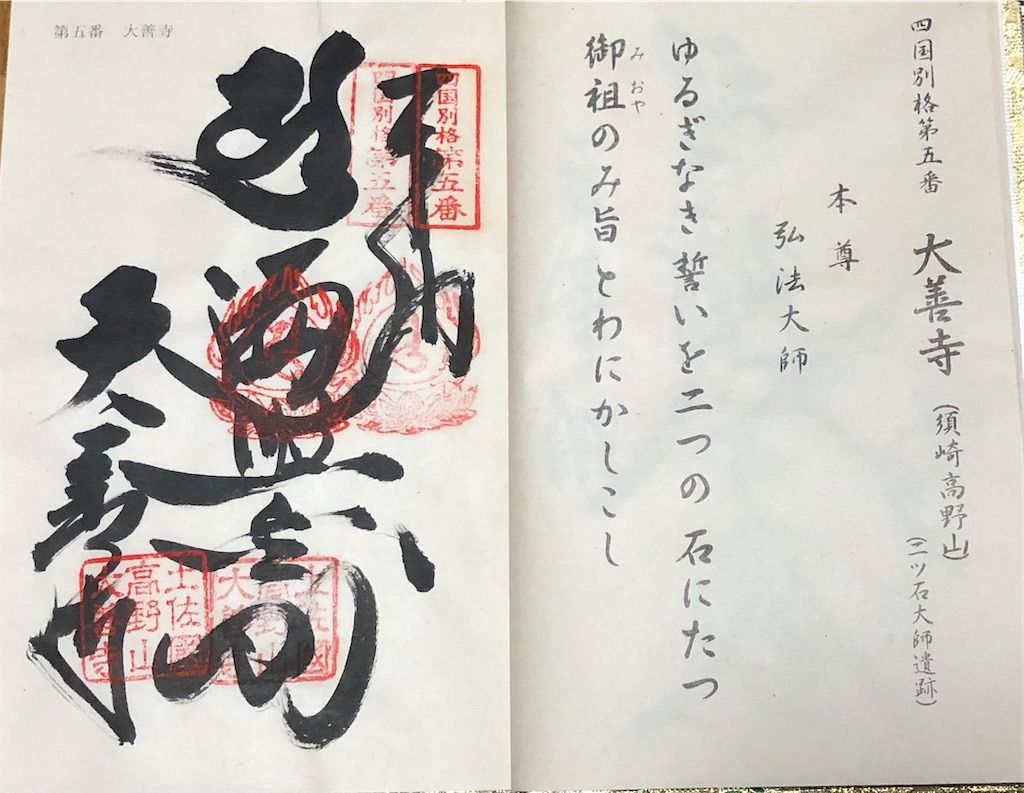 四国別格第五番　大善寺(須崎高野山)
(二ツ石大師遺跡)
本尊
弘法大師
ゆるぎなき誓いを二つの石にたつ
みおや
御祖のみ旨とわにかしこし
第五番　大善寺
奉納
四国別格第五番
四国別格第五番
大善寺
土佐國
高野山
大善寺
土佐國
高野山
大善寺